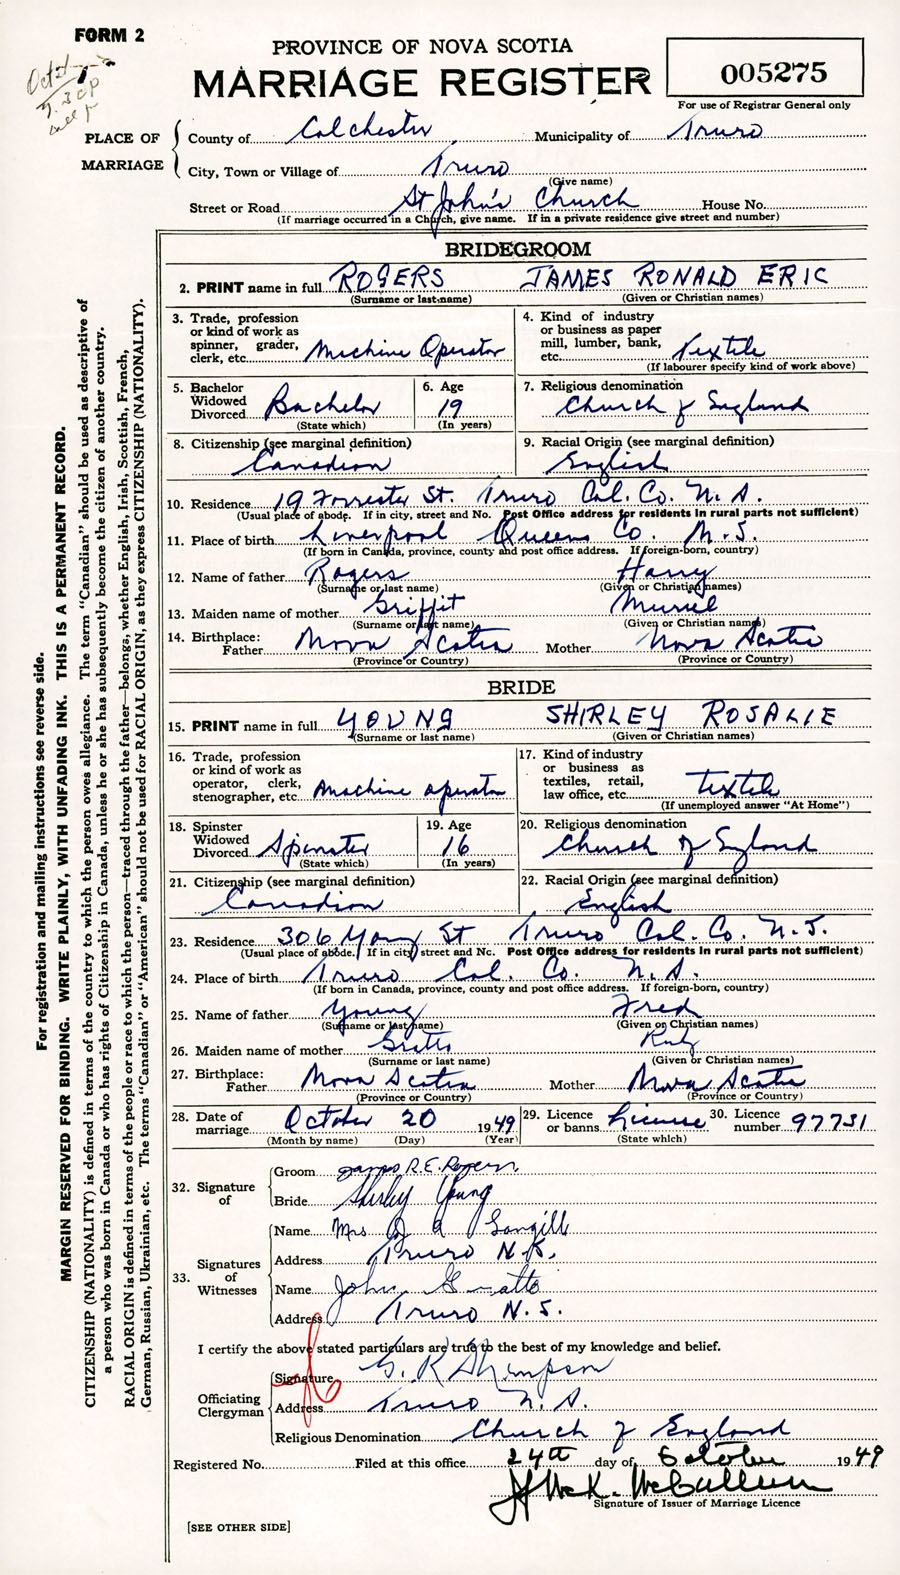 FORM 2
PROVINCE OF NOVA SCOTIA
MARRIAGE REGISTER
005275
For use of Registrar General only
PLACE OF MARRIAGE
County of Colchester Municipality of Truro
City, Town or Village of Truro
(Give name)
Street or Road St John's Church House No.
(If marriage occurred in a Church, give name. If in a private residence give street and number)
BRIDEGROOM
2. PRINT name in full ROGERS JAMES RONALD ERIC
(Surname or last name) (Given or Christian names)
3. Trade, profession or kind of work as spinner, grader, clerk, etc. Machine Operator
4. Kind of industry or business as paper mill, lumber, bank, etc. Textile
(If labourer specify kind of work above)
5. Bachelor Widowed Divorced Bachelor
(State which)
6. Age 19
(In years)
7. Religious denomination Church of England
8. Citizenship (see marginal definition) Canadian
9. Racial Origin (see marginal definition) English
10. Residence 19 Forrester St. Truro Col. Co. N. S.
(Usual place of abode. If in city, street and No. Post Office address for residents in rural parts not sufficient)
11. Place of birth Liverpool Queens Co. N. S.
(If born in Canada, province, county and post office address. If foreign-born, country)
12. Name of father Rogers Harry
(Surname or last name) (Given or Christian names)
13. Maiden name of mother Griffit Muriel
(Surname or last name) (Given or Christian names)
14. Birthplace: Father Nova Scotia Mother Nova Scotia
(Province or Country) (Province or Country)
BRIDE
15. PRINT name in full YOUNG SHIRLEY ROSALIE
(Surname or last name) (Given or Christian names)
16. Trade, profession or kind of work as operator, clerk, stenographer, etc. Machine operator
17. Kind of industry or business as textiles, retail, law office, etc. Textile
(If unemployed answer "At Home")
18. Spinster Widowed Divorced Spinster
(State which)
19. Age 16
(In years)
20. Religious denomination Church of England
21. Citizenship (see marginal definition) Canadian
22. Racial Origin (see marginal definition) English
23. Residence 306 Young St Truro Col. Co. N. S.
(Usual place of abode. If in city street and No. Post Office address for residents in rural parts not sufficient)
24. Place of birth Truro Col. Co. N. S.
(If born in Canada, province, county and post office address. If foreign-born, country)
25. Name of father Young Fred
(Surname or last name) (Given or Christian names)
26. Maiden name of mother Gratto Ruby
(Surname or last name) (Given or Christian names)
27. Birthplace: Father Nova Scotia Mother Nova Scotia
(Province or Country) (Province or Country)
28. Date of marriage October 20 1949
(Month by name) (Day) (Year)
29. Licence or banns License
(State which)
30. Licence number 97731
32. Signature of
Groom James R. E. Rogers
Bride Shirley Young
33. Signatures of Witnesses
Name Mrs Langill
Address Truro N. S.
Name John Gratto
Address Truro N. S.
I certify the above stated particulars are true to the best of my knowledge and belief.
Officiating Clergyman
Signature G. K Thompson
Address Truro N. S.
Religious Denomination Church of England
Registered No. Filed at this office 24th day of October 1949
McCallum
Signature of Issuer of Marriage Licence
[SEE OTHER SIDE]
For registration and mailing instructions see reverse side.
MARGIN RESERVED FOR BINDING. WRITE PLAINLY, WITH UNFADING INK. THIS IS A PERMANENT RECORD.
CITIZENSHIP (NATIONALITY) is defined in terms of the country to which the person owes allegiance. The term "Canadian" should be used as descriptive of
a person who was born in Canada or who has rights of Citizenship in Canada, unless he or she has subsequently become the citizen of another country.
RACIAL ORIGIN is defined in terms of the people or race to which the person—traced through the father—belongs, whether English, Irish, Scottish, French,
German, Russian, Ukrainian, etc. The terms "Canadian" or "American" should not be used for RACIAL ORIGIN, as they express CITIZENSHIP (NATIONALITY).